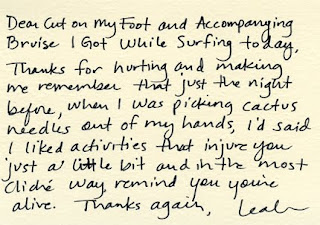 Dear Cut on My Foot and Accompanying
Bruise I Got While Surfing today,
Thanks for hurting and making
me remember that just the night
before, when I was picking cactus
needles out of my hands, I'd said
I liked activities that injure you
just a little bit and in the most
cliché way remind you you're
alive. Thanks again, Leah